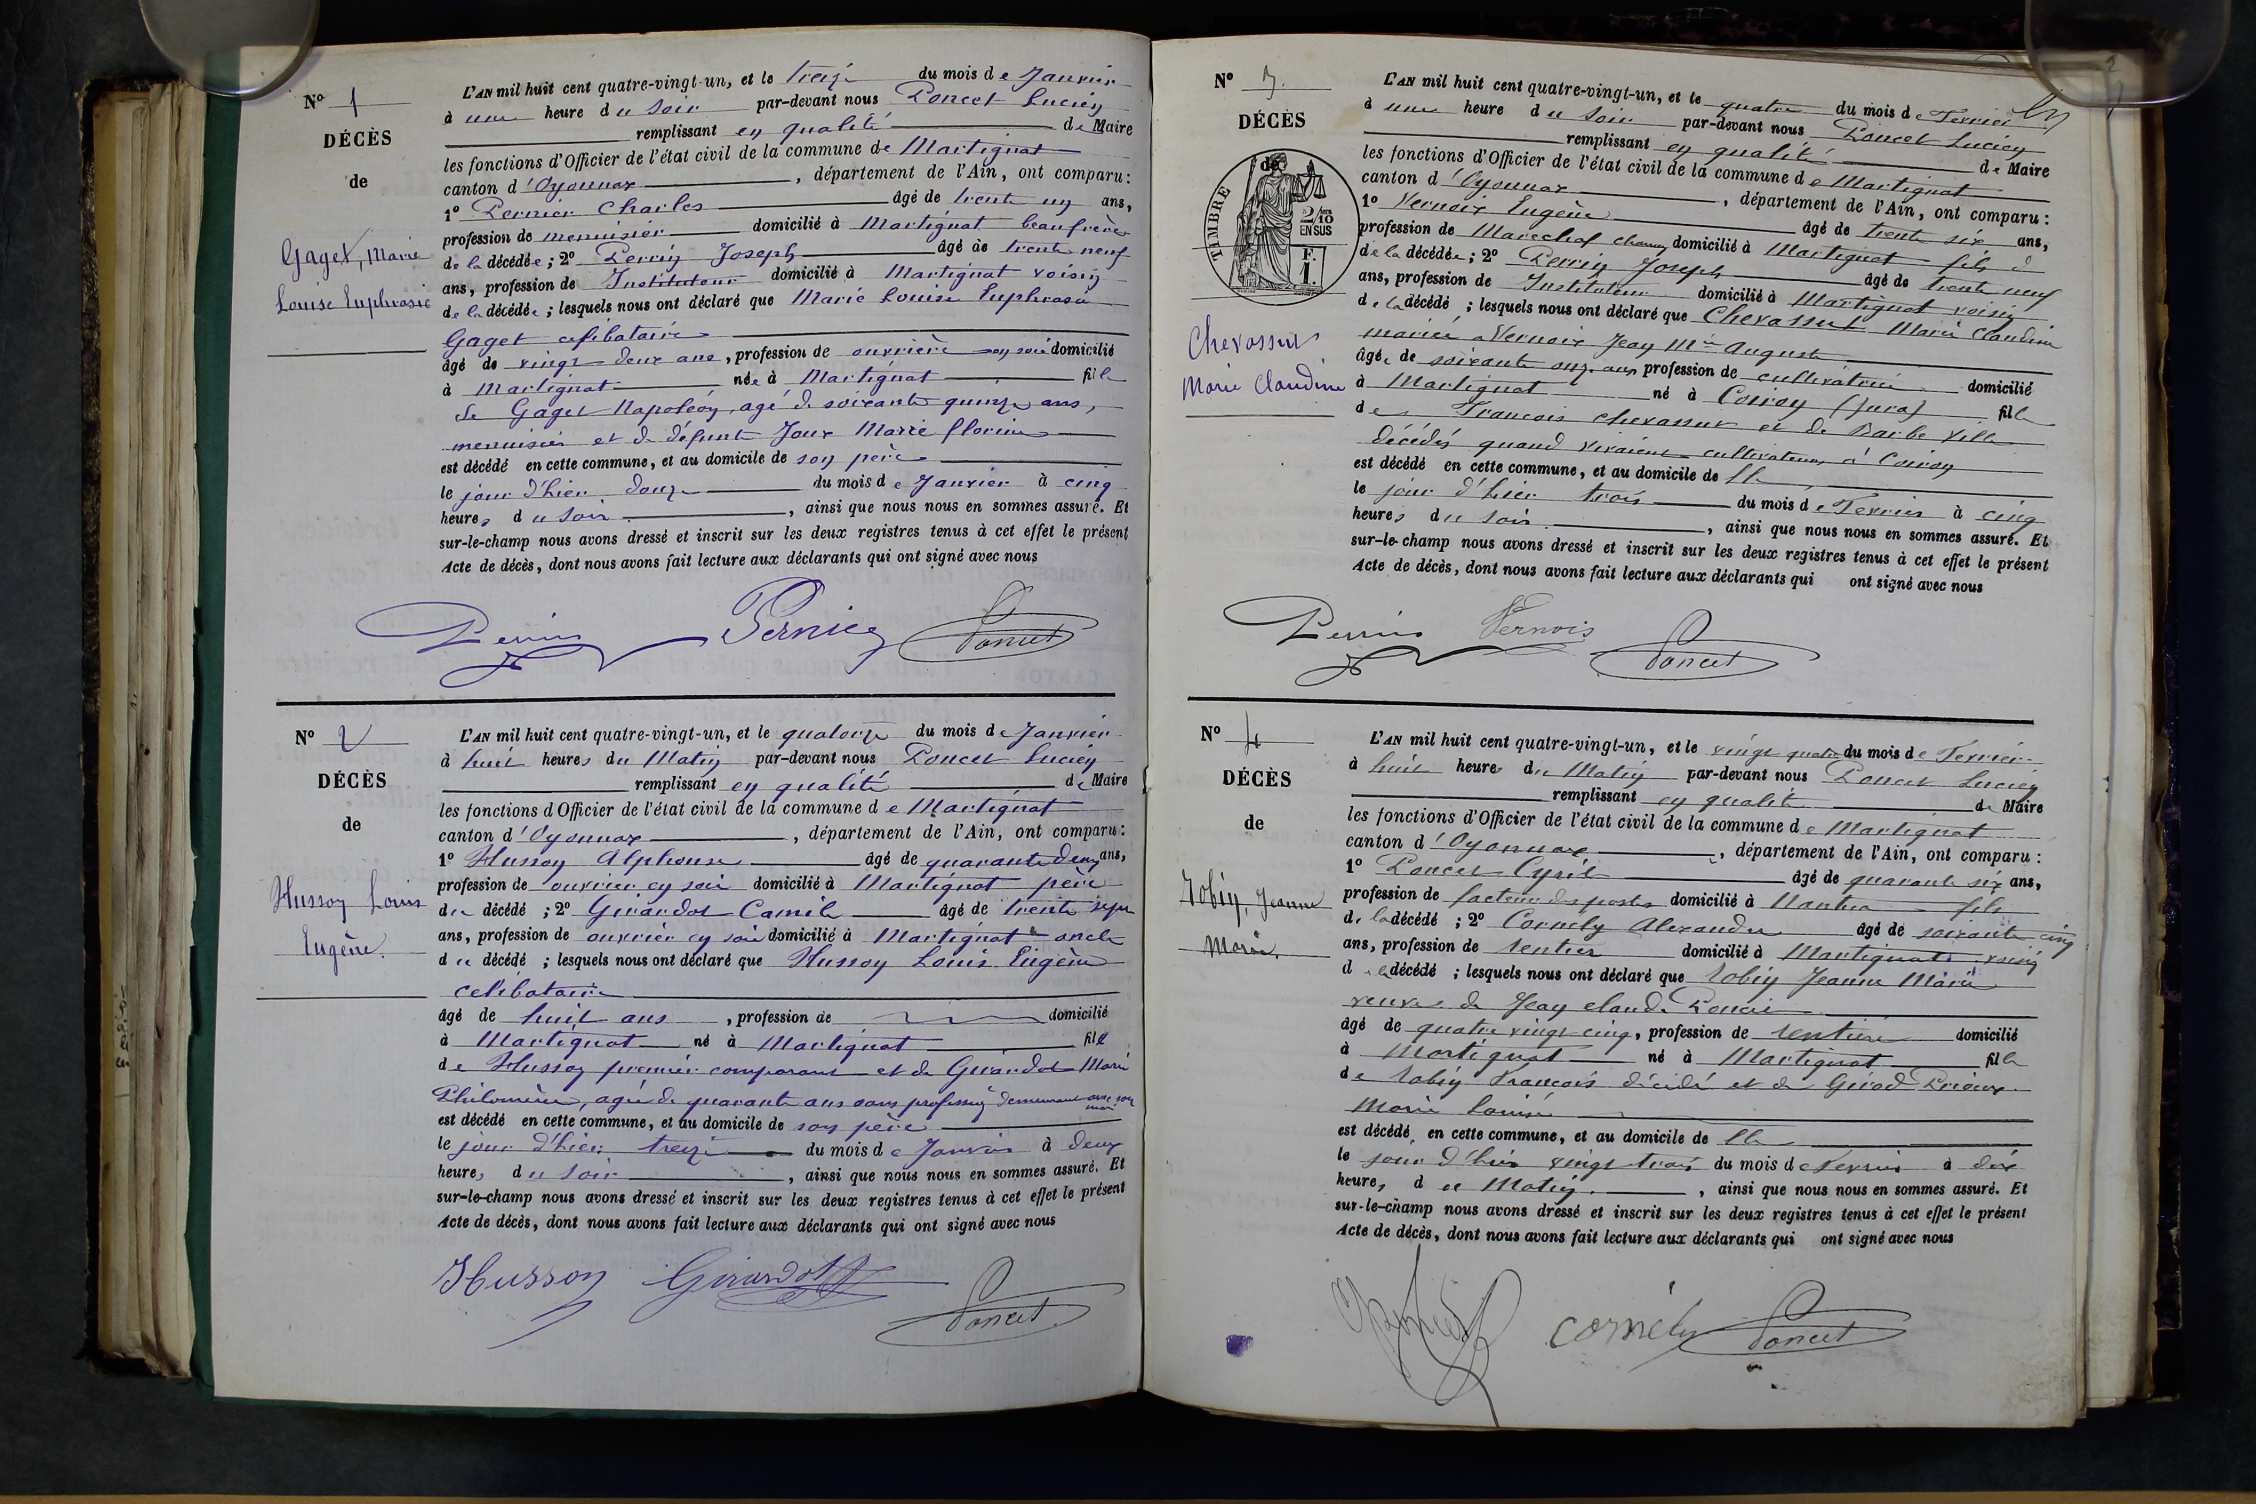 N° 1
DÉCÈS
de
Gaget, Marie
Louise Euphrasie
L'AN mil huit cent quatre-vingt-un, et le treize du mois de Janvier
à une heure du soir par-devant nous Poncet Lucien
remplissant en qualité de Maire
les fonctions d'Officier de l'état civil de la commune de Martignat
canton d'Oyonnax, département de l'Ain, ont comparu :
1° Pernier Charles âgé de trente un ans,
profession de menuisier domicilié à Martignat beaufrère
de la décédée ; 2° Perrin Joseph âgé de trente neuf
ans, profession de Instituteur domicilié à Martignat voisin
de la décédée ; lesquels nous ont déclaré que Marie Louise Euphrasie
Gaget célibataire
âgé de vingt deux ans, profession de ouvrière en soie domicilié
à Martignat née à Martignat fille
de Gaget Napoléon, agé de soixante quinze ans,
menuisier et de défunte Joux Marie florine
est décédé en cette commune, et au domicile de son père
le jour d'hier douze du mois de Janvier à cinq
heures du soir, ainsi que nous nous en sommes assuré. Et
sur-le-champ nous avons dressé et inscrit sur les deux registres tenus à cet effet le présent
Acte de décès, dont nous avons fait lecture aux déclarants qui ont signé avec nous
Perrin Pernier Poncet
N° 2
DÉCÈS
de
Husson Louis
Eugène.
L'AN mil huit cent quatre-vingt-un, et le quatorze du mois de Janvier
à huit heures du Matin par-devant nous Poncet Lucien
remplissant en qualité de Maire
les fonctions d'Officier de l'état civil de la commune de Martignat
canton d'Oyonnax, département de l'Ain, ont comparu :
1° Husson Alphonse âgé de quarante deux ans,
profession de ouvrier en soie domicilié à Martignat père
du décédé ; 2° Girardot Camile âgé de trente sept
ans, profession de ouvrier en soie domicilié à Martignat oncle
du décédé ; lesquels nous ont déclaré que Husson Louis Eugène
célibataire
âgé de huit ans, profession de domicilié
à Martignat né à Martignat fils
de Husson premier comparant et de Girardot Marie
Philomène, agée de quarante ans sans profession demeurant avec son mari
est décédé en cette commune, et au domicile de son père
le jour d'hier treize du mois de Janvier à deux
heures du soir, ainsi que nous nous en sommes assuré. Et
sur-le-champ nous avons dressé et inscrit sur les deux registres tenus à cet effet le présent
Acte de décès, dont nous avons fait lecture aux déclarants qui ont signé avec nous
Husson Girardot Poncet
2
N° 3.
DÉCÈS
de
TIMBRE
2/10
EN SUS
F.
1.
Chevassus
Marie Claudine
L'AN mil huit cent quatre-vingt-un, et le quatre du mois de Fevrier
à une heure du soir par-devant nous Poncet Lucien
remplissant en qualité de Maire
les fonctions d'Officier de l'état civil de la commune de Martignat
canton d'Oyonnax, département de l'Ain, ont comparu :
1° Vernois Eugène âgé de trente six ans,
profession de Marechal domicilié à Martignat fils
de la décédée ; 2° Perrin Joseph âgé de trente neuf
ans, profession de Instituteur domicilié à Martignat voisin
de la décédé ; lesquels nous ont déclaré que Chevassus Marie Claudine
mariée à Vernois Jean Mie Auguste
âgée de soixante onze ans profession de cultivatrice domicilié
à Martignat né à Coiron (Jura) fille
de Francois chevassus et de Barbe
décédés quand vivaient cultivateurs à Coiron
est décédé en cette commune, et au domicile de elle
le jour d'hier trois du mois de Fevrier à cinq
heures du soir, ainsi que nous nous en sommes assuré. Et
sur-le-champ nous avons dressé et inscrit sur les deux registres tenus à cet effet le présent
Acte de décès, dont nous avons fait lecture aux déclarants qui ont signé avec nous
Perrin Vernois Poncet
N° 4
DÉCÈS
de
Robin, Jeanne
Marie.
L'AN mil huit cent quatre-vingt-un, et le vingt quatre du mois de Février
à huit heures du Matin par-devant nous Poncet Lucien
remplissant en qualité de Maire
les fonctions d'Officier de l'état civil de la commune de Martignat
canton d'Oyonnax, département de l'Ain, ont comparu :
1° Poncet Cyrile âgé de quarante six ans,
profession de facteur des postes domicilié à Nantua fils
de la décédé ; 2° Cornély Alexandre âgé de soixante cinq
ans, profession de rentier domicilié à Martignat voisin
de la décédé ; lesquels nous ont déclaré que Robin Jeanne Marie
veuve de Jean claude Poncet
âgé de quatre vingt cinq, profession de rentière domicilié
à Martignat né à Martignat fille
de Robin Francois décédé et de Girod
Marie Louise
est décédé en cette commune, et au domicile de elle
le jour d'hier vingt trois du mois de Fevrier à dix
heures du Matin, ainsi que nous nous en sommes assuré. Et
sur-le-champ nous avons dressé et inscrit sur les deux registres tenus à cet effet le présent
Acte de décès, dont nous avons fait lecture aux déclarants qui ont signé avec nous
Cornély Poncet